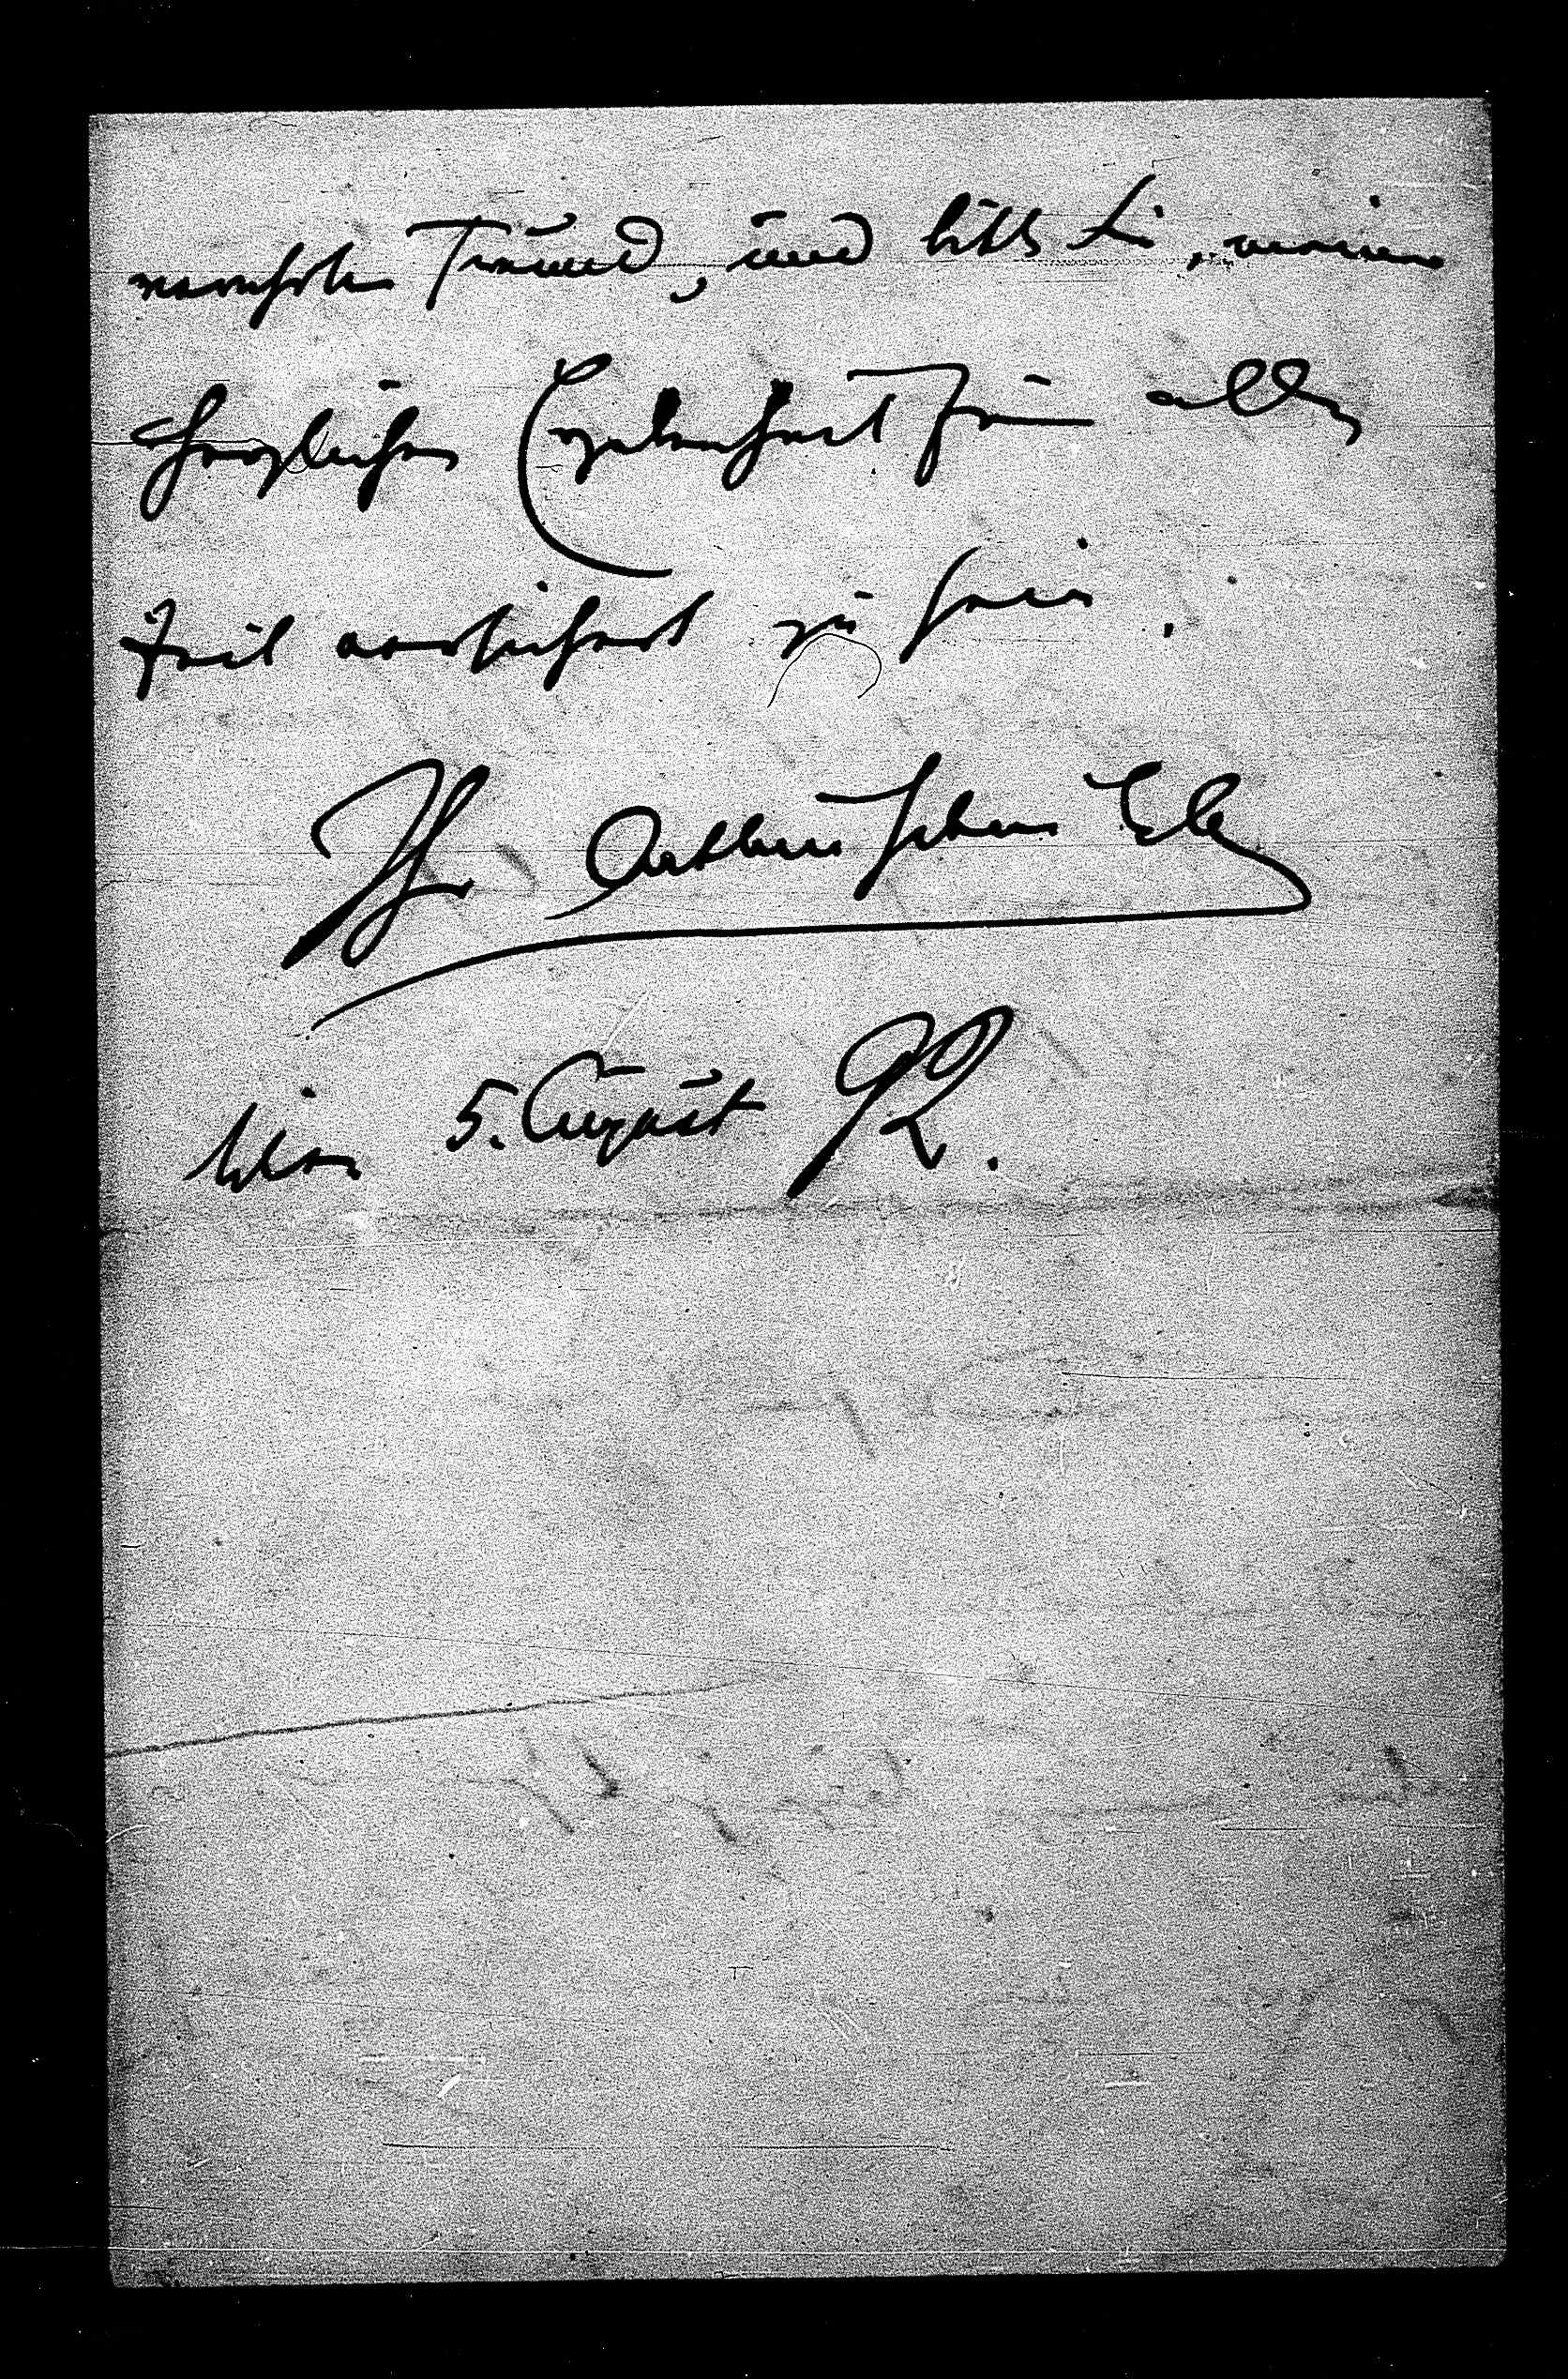 verehrter Freund, und bitte Sie, meiner
herzlichen Ergebenheit für alle
Zeit versichert zu sein.
Ihr Arthur Schnitzler
Wien 5. August 92.